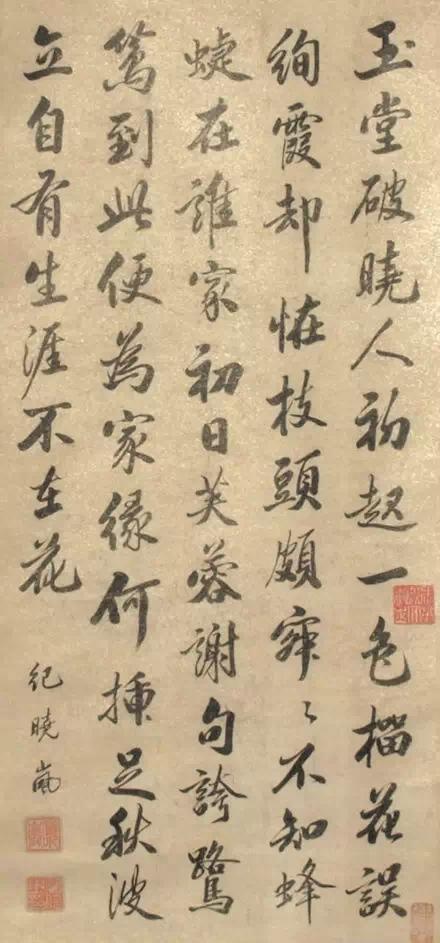 玉堂破曉人初起一色榴花誤
絢霞却恠枝頭頗寂〻不知蜂
蜨在誰家初日芙蓉謝句誇鷺
到此便為家緣何插足秋波
立自有生涯不在花
紀曉嵐